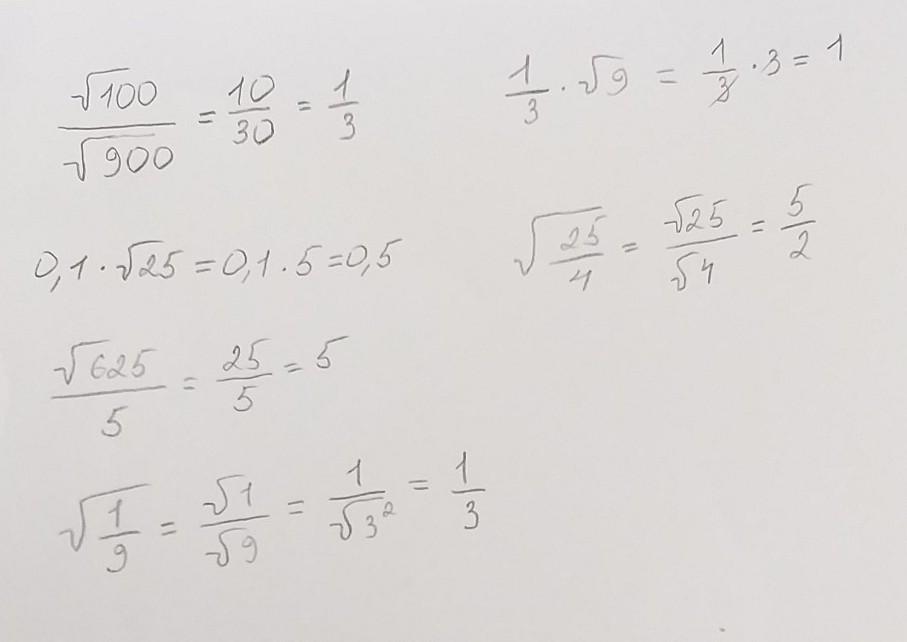 √100/√900 = 10/30 = 1/3
1/3 · √9 = 1/3 · 3 = 1
0,1 · √25 = 0,1 · 5 = 0,5
√(25/4) = √25/√4 = 5/2
√625/5 = 25/5 = 5
√(1/9) = √1/√9 = 1/√3² = 1/3